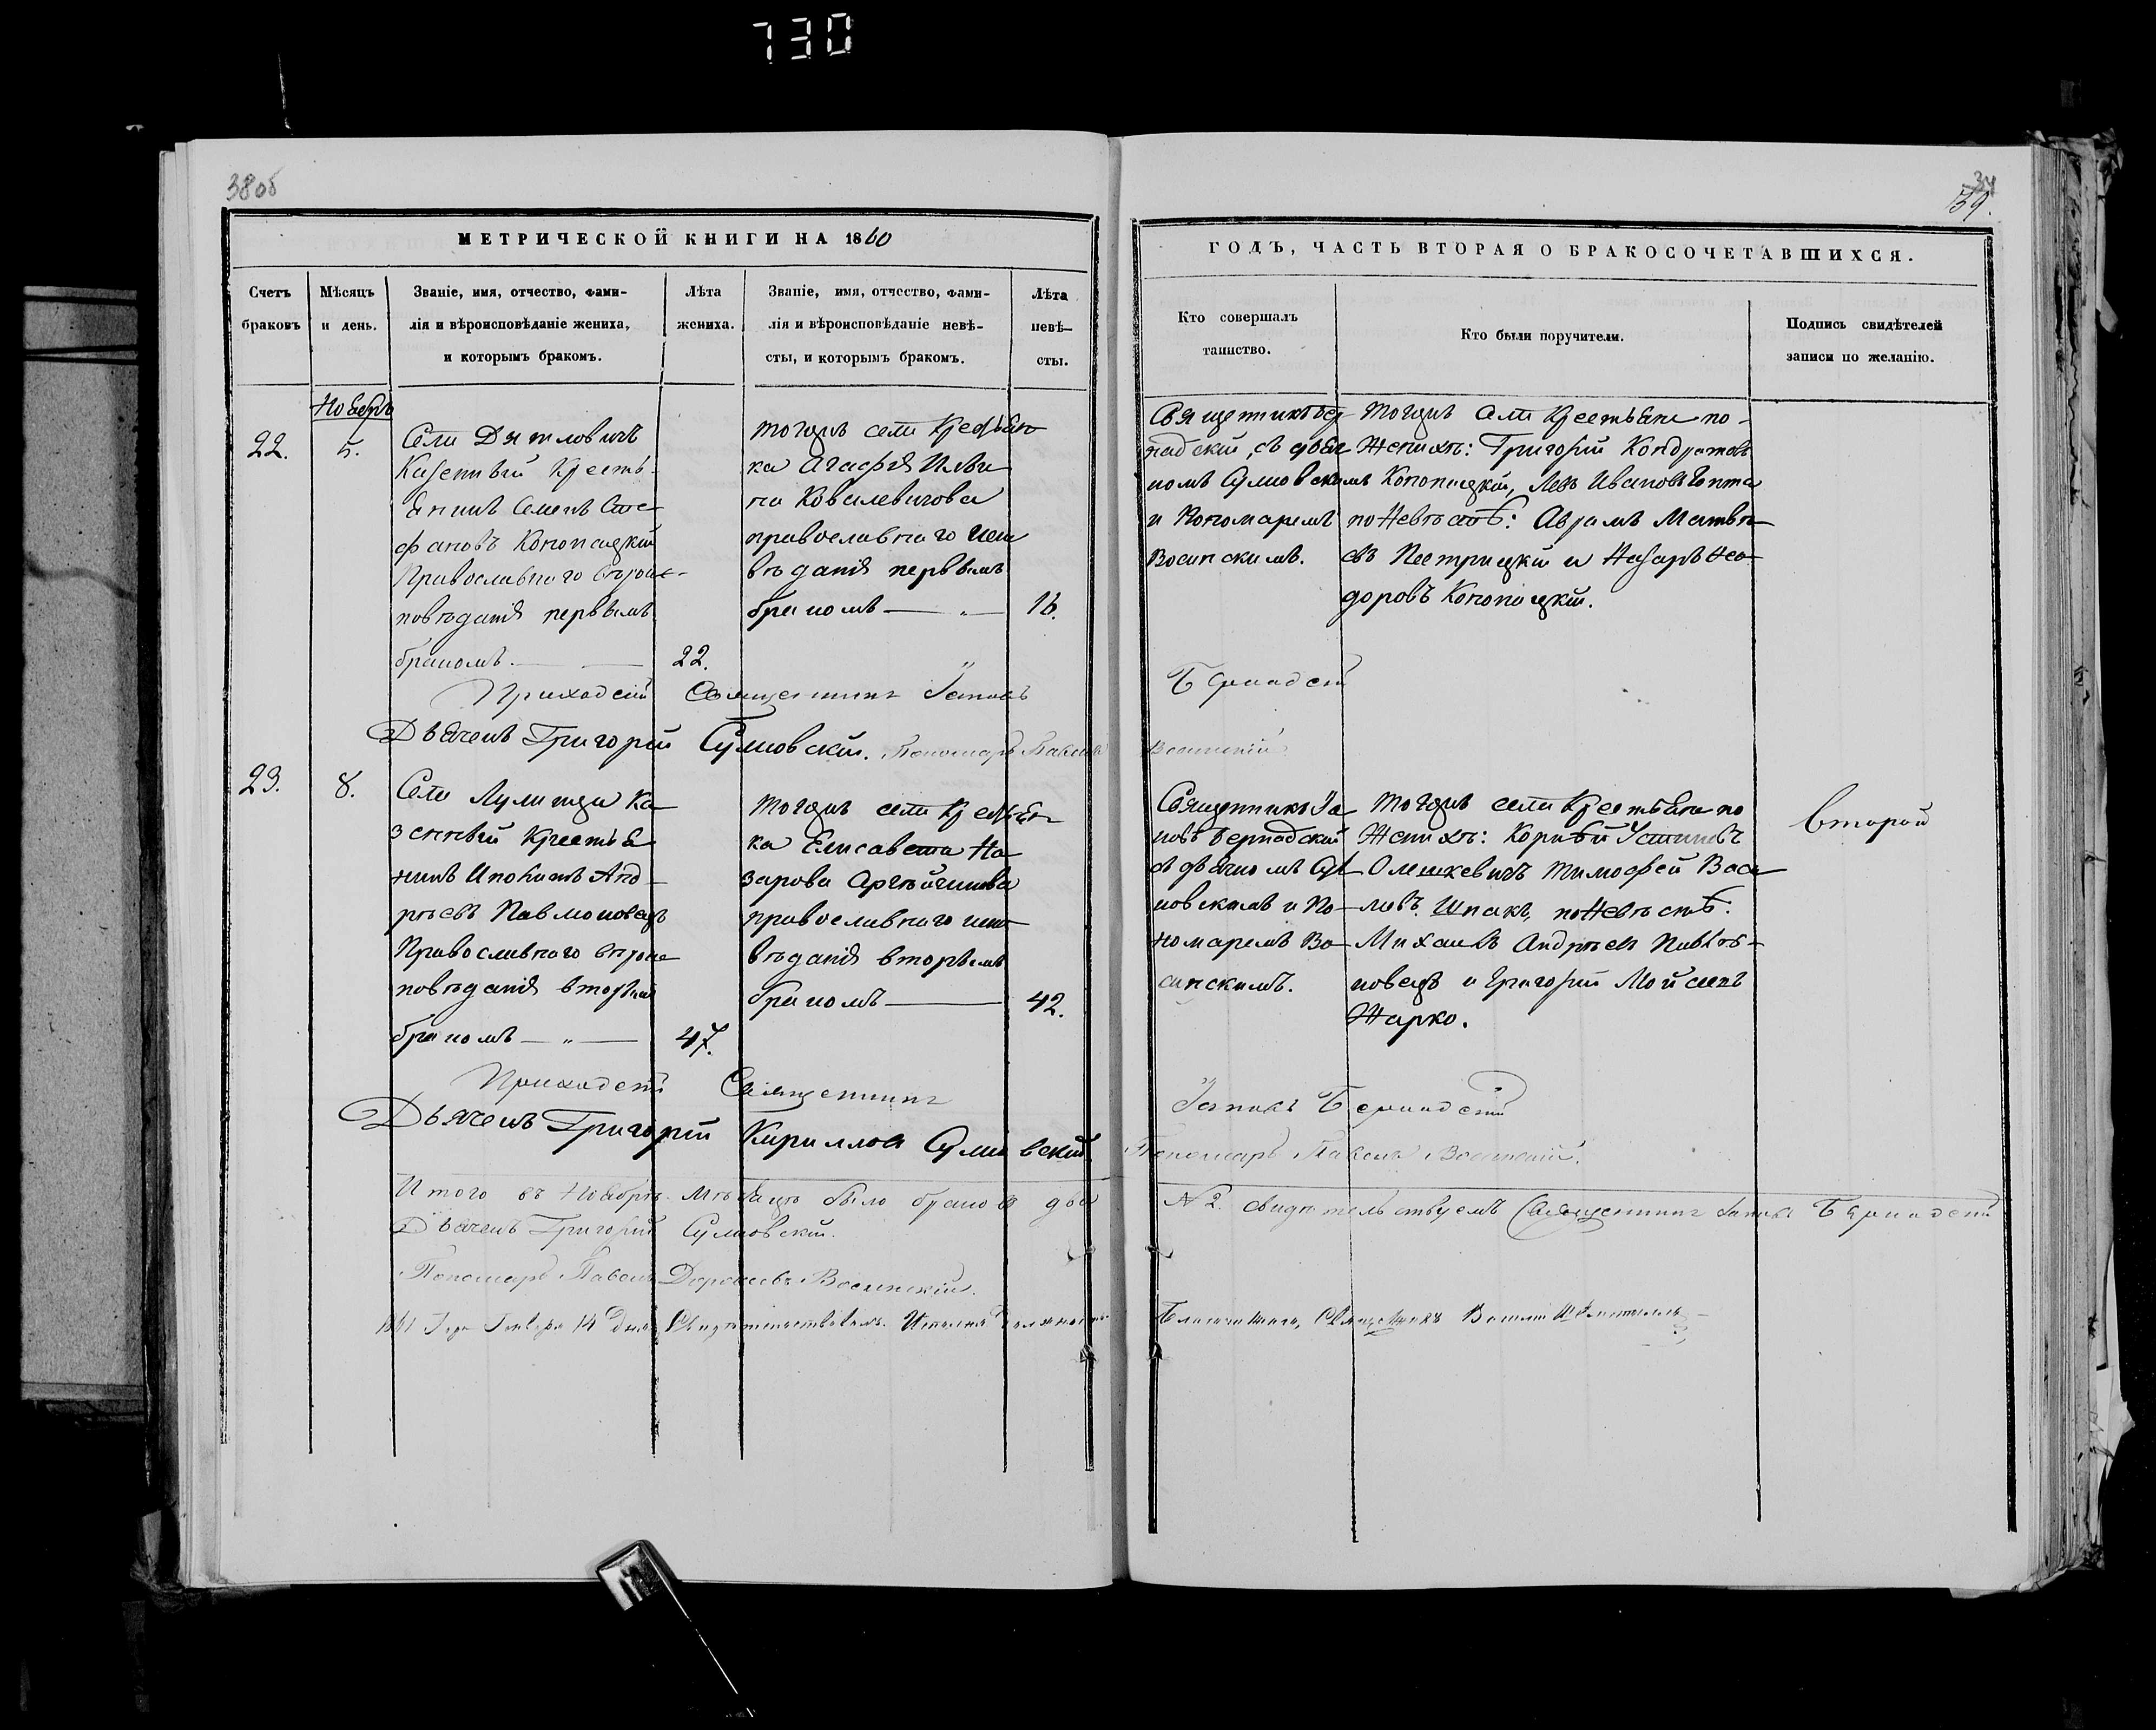 730
38об
39.
МЕТРИЧЕСКОЙ КНИГИ НА 1860
ГОДЪ, ЧАСТЬ ВТОРАЯ О БРАКОСОЧЕТАВШИХСЯ.
Счетъ браковъ
Мѣсяцъ и день.
Званіе, имя, отчество, фами-
лія и вѣроисповѣданіе жениха,
и которымъ бракомъ.
Лѣта жениха.
Званіе, имя, отчество, фами-
лія и вѣроисповѣданіе невѣ-
сты, и которымъ бракомъ.
Лѣта
невѣ-
сты.
Кто совершалъ
таинство.
Кто были поручители.
Подпись свидѣтелей
записи по желанію.
Ноябрь
22.
5.
Села Дятловичъ
Казенный Кресть-
янинъ Семенъ Сте-
фановъ Конопацкій
Православнаго вѣроис-
повѣданія первымъ
бракомъ
22.
тогожъ села Крестьян
ка Агафія Ильи
на Ковалевичова
православнаго испо
вѣданія первымъ
бракомъ — „ —
16.
надскій, съ дьяч
комъ Сулковскимъ
и Пономаремъ
Восинскимъ.
тогожъ села Крестьяне по
Женихѣ: Григорій Кондратовъ
Конопацкій, Левъ Ивановъ
по Невѣстѣ: Аврамъ Матвѣ
евъ Пестрицкій и Назаръ Нео
доровъ Конопацкій.
Приходскій Священникъ Іаковъ Бернадскій
Дьячекъ Григорій Сулковскій. Пономарь Павелъ Восинскій
23.
8.
Села Лулинца Ка
зенный Крестья
нинъ Андрѣевъ
Православнаго вѣроис
повѣданія вторымъ
бракомъ — „ —
47.
тогожъ села Крестьян
ка Елисавета На
зарова
православнаго испо
вѣданія вторымъ
бракомъ
42.
Священникъ Іа
ковъ Бернадский
съ дьячкомъ Сул
ковскимъ и По
номаремъ Во
синскимъ.
тогожъ села Крестьяне по
Женихѣ: Корнѣй Устиновъ
Олешкевичъ Тимофей Васи
левъ Шпакъ, по Невѣстѣ:
Михаилъ Андрѣевъ
новецъ и Григорій Мойсеевъ
Жарко.
второй
Приходскій Священникъ Іаковъ Бернадскій
Дьячекъ Григорій Кирилловъ Сулковскій. Пономарь Павелъ Восинскій.
Итого въ Ноябрѣ Мѣсяцѣ было браковъ два № 2. свидѣтельствуемъ Священникъ Іаковъ Бернадскій
Дьячекъ Григорій Сулковскій.
Пономарь Павелъ Восинскій.
1861 Года Генваря 14 Дня Свидѣтельствовалъ. Священникъ